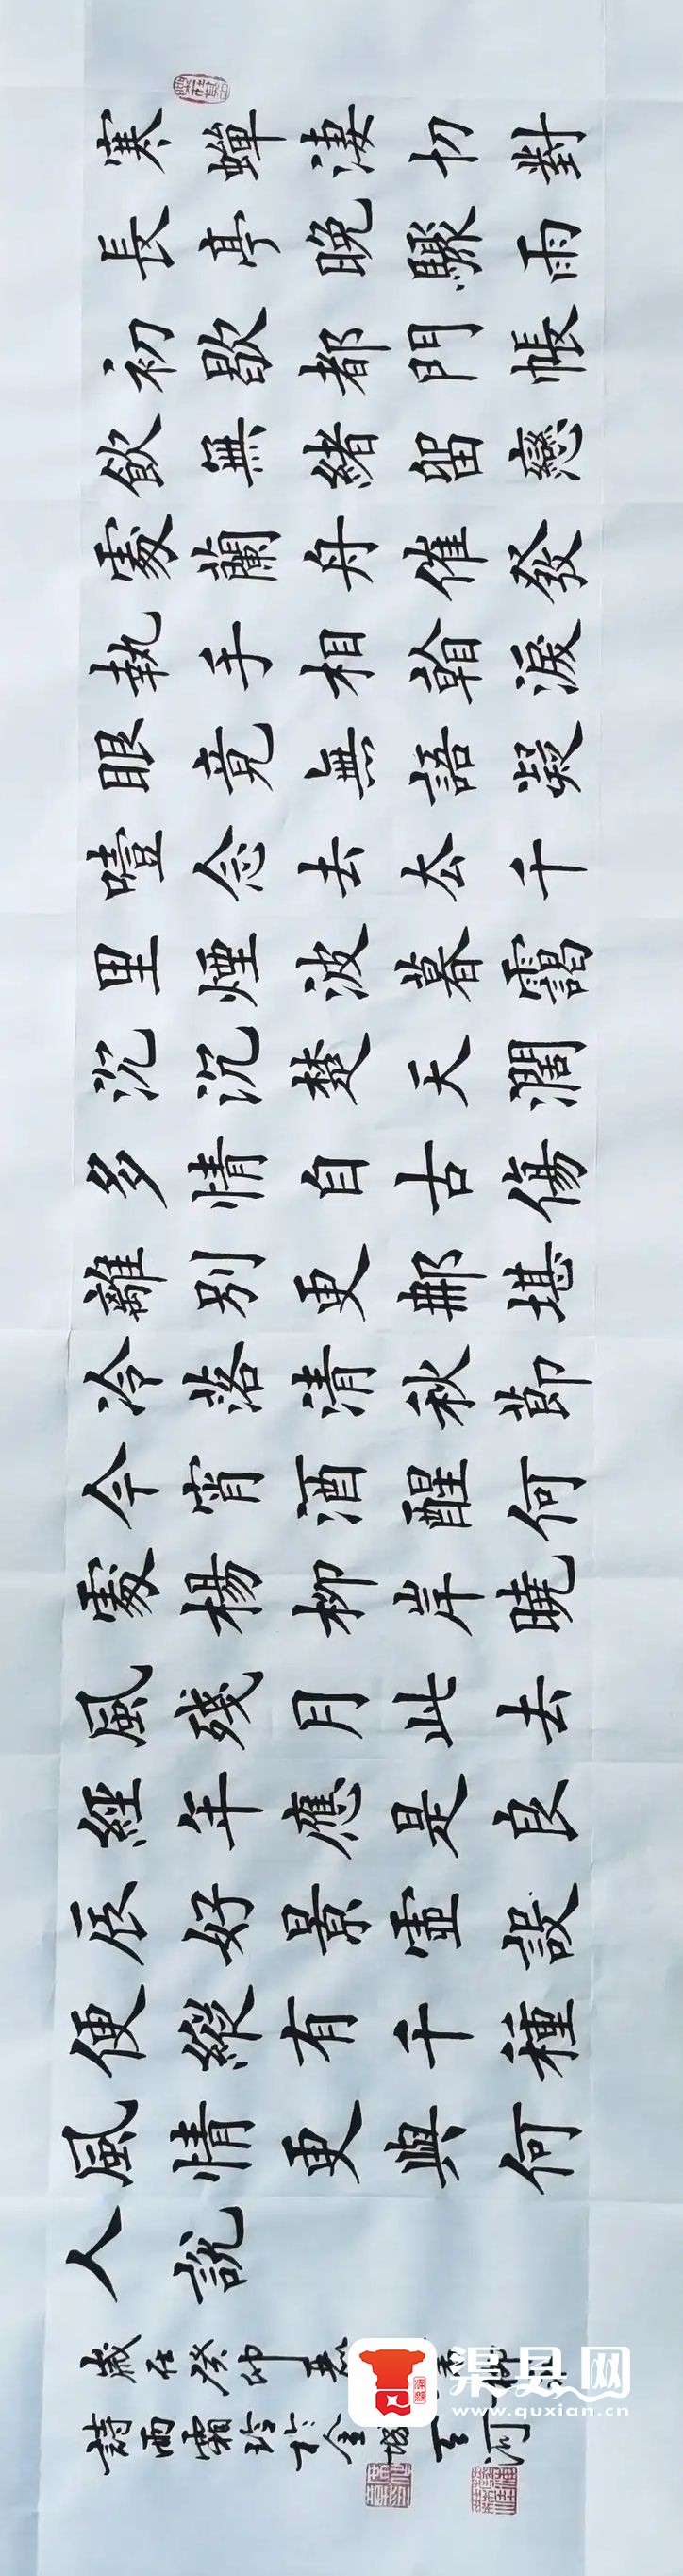 寒蟬淒切對
長亭晚驟雨
初歇都門帳
飲無緒留戀
處蘭舟催發
執手相看淚
眼竟無語凝
噎念去去千
里煙波暮靄
沉沉楚天闊
多情自古傷
離別更那堪
冷落清秋節
今宵酒醒何
處楊柳岸曉
風殘月此去
經年應是良
辰好景虛設
便縱有千種
風情更與何
人說
歲在癸卯
詩雨霜玲於金城
渠县网
www.quxian.cn